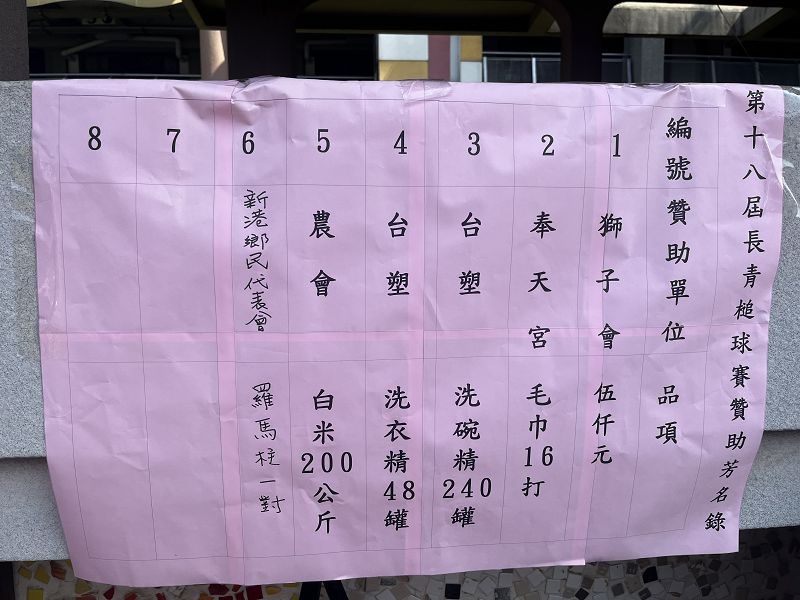 第十八屆長青槌球賽贊助芳名錄
編號 贊助單位 品項
1 獅子會 伍仟元
2 奉天宮 毛巾16打
3 台塑 洗碗精240罐
4 台塑 洗衣精48罐
5 農會 白米200公斤
6 新港鄉民代表會 羅馬柱一對
7
8